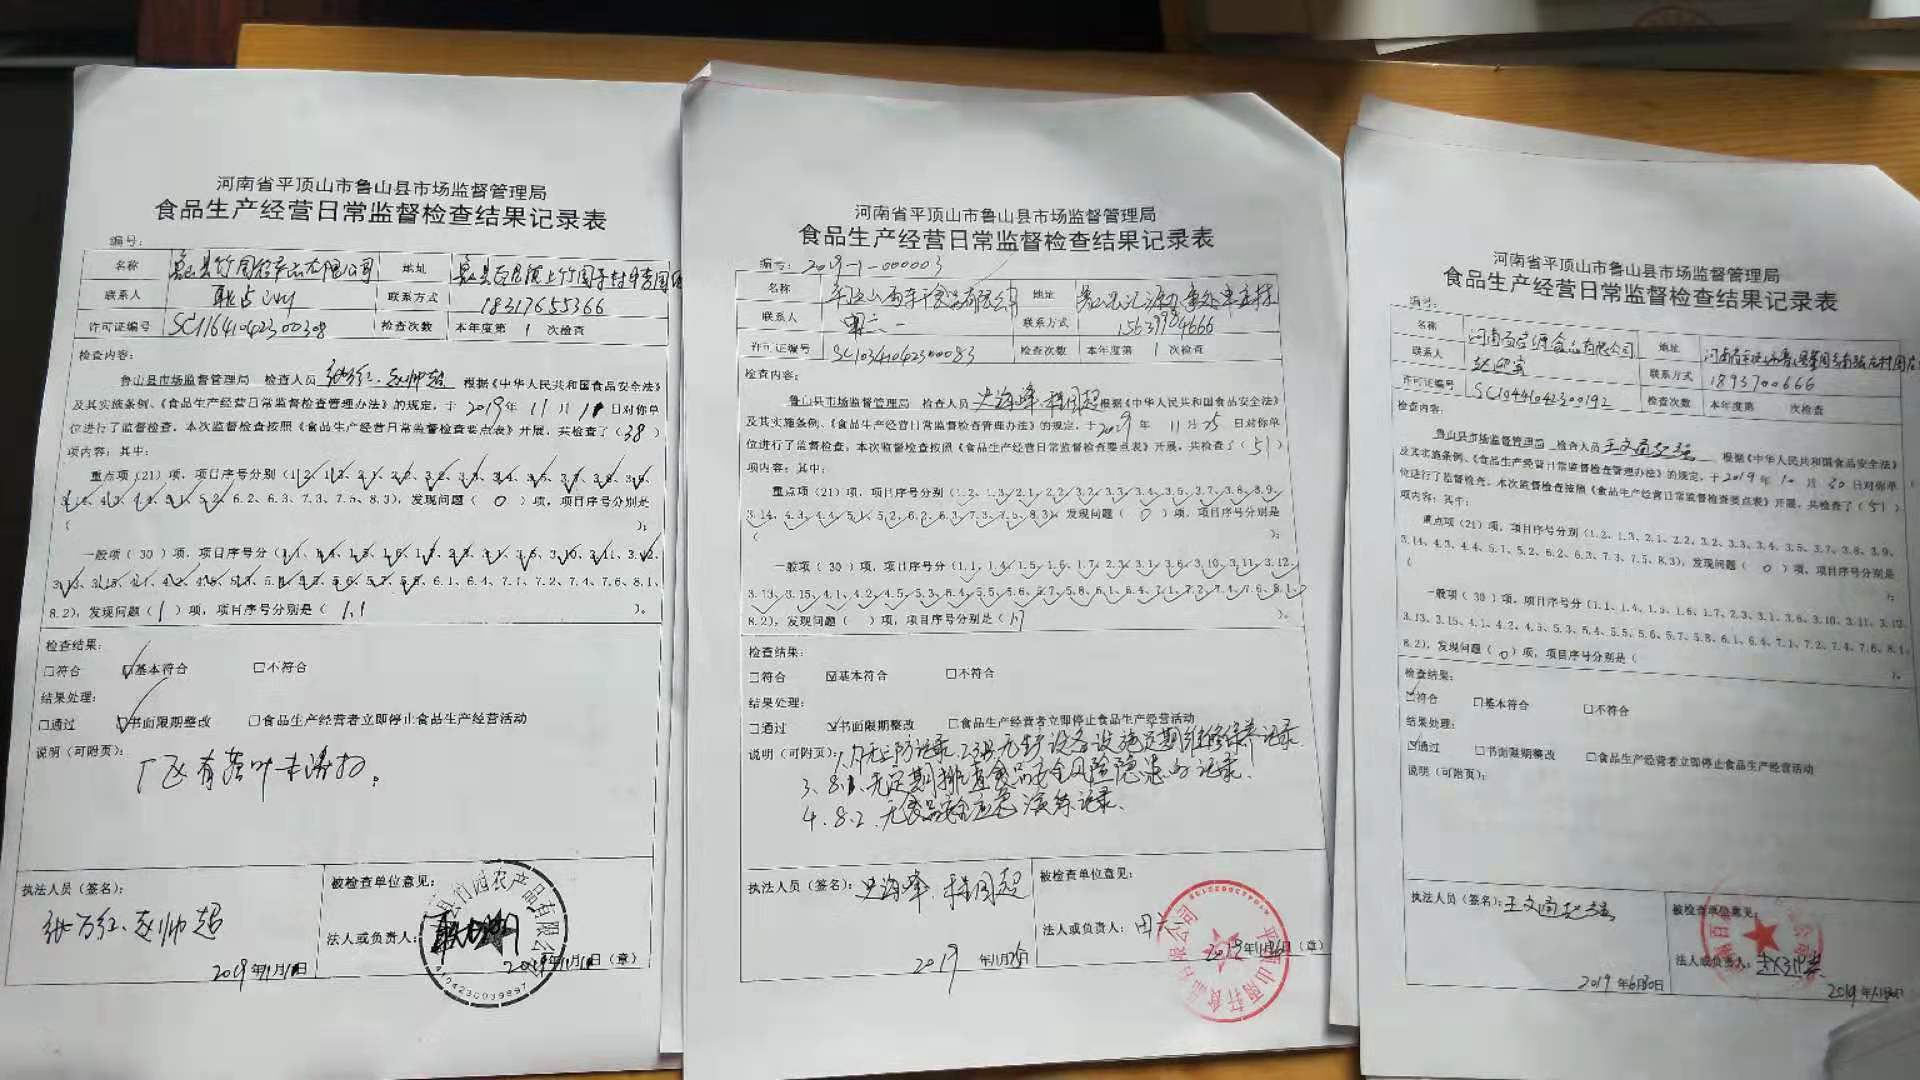 河南省平顶山市鲁山县市场监督管理局
食品生产经营日常监督检查结果记录表
编号:
名称 鲁山县竹园农产品有限公司 地址
联系人 联系方式 18317655366
许可证编号 SC11641042300308 检查次数 本年度第 1 次检查
检查内容:
鲁山县市场监督管理局 检查人员 张万红、赵帅超 根据《中华人民共和国食品安全法》
及其实施条例、《食品生产经营日常监督检查管理办法》的规定,于 2019年 11 月 日对你单
位进行了监督检查。本次监督检查按照《食品生产经营日常监督检查要点表》开展,共检查了(38)
项内容;其中:
重点项(21)项,项目序号分别(1.2、1.3、2.1、2.2、3.2、3.3、3.4、3.5、3.7、3.8、3.9、
3.14、4.3、4.4、5.1、5.2、6.2、6.3、7.3、7.5、8.3),发现问题( 0 )项,项目序号分别是
( );
一般项( 30 )项,项目序号分(1.1、1.4、1.5、1.6、1.7、2.3、3.1、3.6、3.10、3.11、3.12、
3.13、3.15、4.1、4.2、4.5、5.3、5.4、5.5、5.6、5.7、5.8、6.1、6.4、7.1、7.2、7.4、7.6、8.1、
8.2),发现问题( 1 )项,项目序号分别是( 1.1 )。
检查结果:
□符合 ☑基本符合 □不符合
结果处理:
□通过 ☑书面限期整改 □食品生产经营者立即停止食品生产经营活动
说明(可附页):
厂区有落叶未清扫。
执法人员(签名):
张万红、赵帅超
2019年11月 日
被检查单位意见:
法人或负责人:
2019年11月 日(章)
竹园农产品有限公司
4104230039897
河南省平顶山市鲁山县市场监督管理局
食品生产经营日常监督检查结果记录表
编号: 2019-1-000003
名称 平顶山雨轩食品有限公司 地址
联系人 田六一 联系方式 15639984666
许可证编号 SC10341042300083 检查次数 本年度第 1 次检查
检查内容:
鲁山县市场监督管理局 检查人员 史海峰 程国超 根据《中华人民共和国食品安全法》
及其实施条例、《食品生产经营日常监督检查管理办法》的规定,于2019 年 11 月 25 日对你单
位进行了监督检查,本次监督检查按照《食品生产经营日常监督检查要点表》开展,共检查了(51)
项内容;其中:
重点项(21)项,项目序号分别(1.2、1.3、2.1、2.2、3.2、3.3、3.4、3.5、3.7、3.8、3.9、
3.14、4.3、4.4、5.1、5.2、6.2、6.3、7.3、7.5、8.3),发现问题( 0 )项,项目序号分别是
( );
一般项( 30 )项,项目序号分(1.1、1.4、1.5、1.6、1.7、2.3、3.1、3.6、3.10、3.11、3.12、
3.13、3.15、4.1、4.2、4.5、5.3、5.4、5.5、5.6、5.7、5.8、6.1、6.4、7.1、7.2、7.4、7.6、8.1、
8.2),发现问题( )项,项目序号分别是( )。
检查结果:
□符合 ☑基本符合 □不符合
结果处理:
□通过 ☑书面限期整改 □食品生产经营者立即停止食品生产经营活动
说明(可附页): 设备设施定期维修保养记录
3、8.1、无定期排查食品安全风险隐患的记录、
4.8.2、无食品安全应急演练记录、
执法人员(签名): 史海峰、程国超
2019 年11月25日
被检查单位意见:
法人或负责人: 田六一
2019年11月 日(章)
平顶山雨轩食品有限公司
河南省平顶山市鲁山县市场监督管理局
食品生产经营日常监督检查结果记录表
编号:
名称 食品有限公司 地址
联系人 联系方式 1893700666
许可证编号 SC10441042300192 检查次数 本年度第 次检查
检查内容:
鲁山县市场监督管理局 检查人员 根据《中华人民共和国食品安全法》
及其实施条例、《食品生产经营日常监督检查管理办法》的规定,于2019 年 月 30 日对你单
位进行了监督检查,本次监督检查按照《食品生产经营日常监督检查要点表》开展,共检查了(51)
项内容;其中:
重点项(21)项,项目序号分别(1.2、1.3、2.1、2.2、3.2、3.3、3.4、3.5、3.7、3.8、3.9、
3.14、4.3、4.4、5.1、5.2、6.2、6.3、7.3、7.5、8.3),发现问题( 0 )项,项目序号分别是
( );
一般项( 30 )项,项目序号分(1.1、1.4、1.5、1.6、1.7、2.3、3.1、3.6、3.10、3.11、3.12、
3.13、3.15、4.1、4.2、4.5、5.3、5.4、5.5、5.6、5.7、5.8、6.1、6.4、7.1、7.2、7.4、7.6、8.1、
8.2),发现问题( 0 )项,项目序号分别是( )。
检查结果:
☑符合 □基本符合 □不符合
结果处理:
☑通过 □书面限期整改 □食品生产经营者立即停止食品生产经营活动
说明(可附页):
执法人员(签名):
2019 年6月30日
被检查单位意见:
法人或负责人:
2019 年6月30日